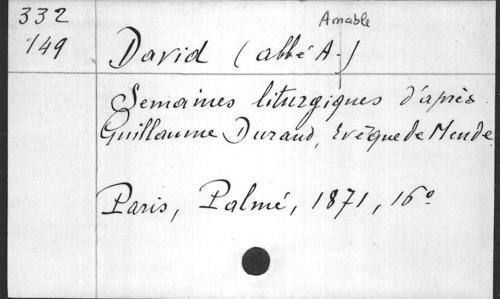 332
149
Amable
David (abbé A.)
Semaines liturgiques d'après
Guillaume Durand, Evêque de Mende
Paris, Palmé, 1871, 16°